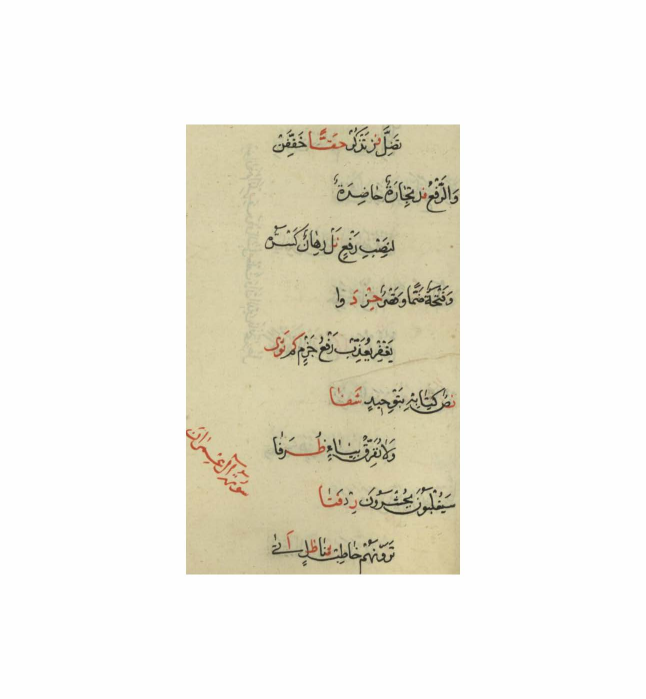 تَضِلَّ فز تَذْكُرَ حقًّا خَفِّفَنْ
وَالرَّفْعُ فد تِجَارَةٌ حَاضِرَةٌ
لِنَصْبِ رَفْعٍ نَل رِهَانٌ كَسْرَةٌ
وَفَتْحَةٌ ضَمًّا وَقَصْرٌ حُزْ دَوا
يَغْفِرْ يُعَذِّبْ رَفْعُ جَزْمٍ كَمْ ثَوَى
نَصٌّ كِتَابِهِ بِتَوْحِيدٍ شَفَا
وَلَا نُفَرِّقُ بِيَاءٍ ظَرَفَا
سورة آل عمران
سَيُغْلَبُونَ يُحْشَرُونَ رِدْ فَتَى
تَرَوْنَهُمْ خَاطِبْ ثنا ظَلٍّ أَتَى